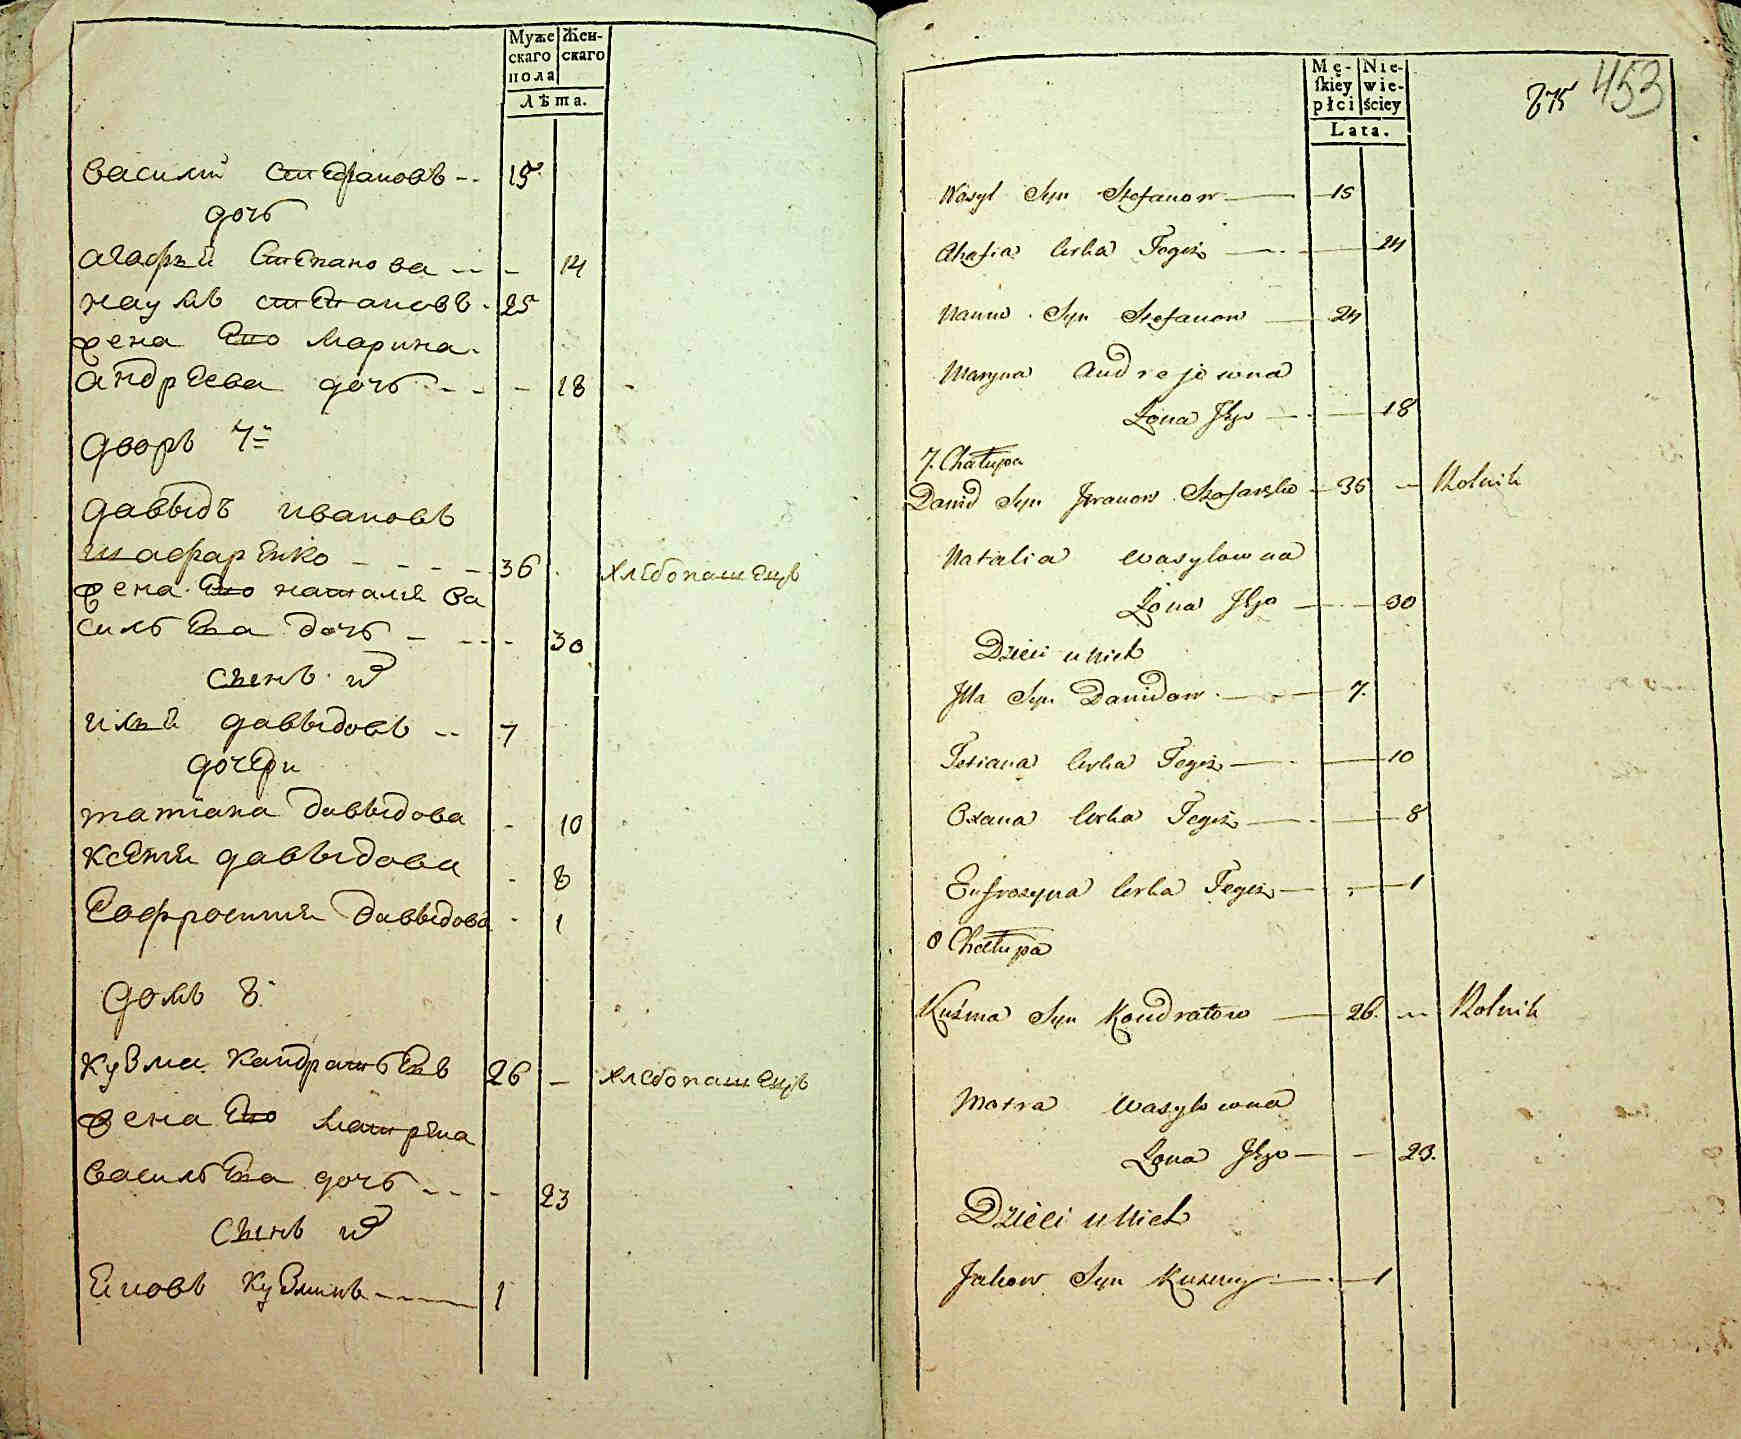 Муже
скаго
пола
Жен-
скаго
лѣта.
Василий Стефановъ -- 15
дочь
Агафия Степанова -- - 14
Наумъ Степановъ - 25
жена Его Марина
Андреева дочь - - - 18
дворъ 7й
давыдъ ивановъ
шафаренко - - - - 36 Хлебопашецъ
жена Его наталия Ва
сильева дочь - -- - 30
Сынъ их
илия давыдовъ -- 7
дочери
татиана давыдова - 10
Ксения давыдова - 8
Еофросиния давыдова - 1
домъ 8й
Кузма Кандратьевъ 26 - Хлебопашецъ
жена Его Матрена
Васильева дочь - - - 23
Сынъ их
Еиовъ Кузминъ - - - - 1
Mę-
skiey
płci
Nie-
wie-
ściey
Lata.
875 453
Wasyl Syn Stefanow — 15
Ahafia Corka Tegoż — 14
Naum Syn Stefanow — 24
Maryna Andrejowna
Żona Jego — 18
7. Chałupa
Dawid Syn Jwanow Szafarko — 36 — Rolnik
Natalia Wasylowna
Żona Jego — 30
Dzieci u Nich
Jlla Syn Dawidow — 7.
Tetiana Corka Tegoż — 10
Oxana Corka Tegoż — 8
Eufrozyna Corka Tegoż — 1
8 Chałupa
Kuźma Syn Kondratow — 26. — Rolnik
Motra Wasylowna
Żona Jego — 23.
Dzieci u Nich
Jakow Syn Kuzmy — 1